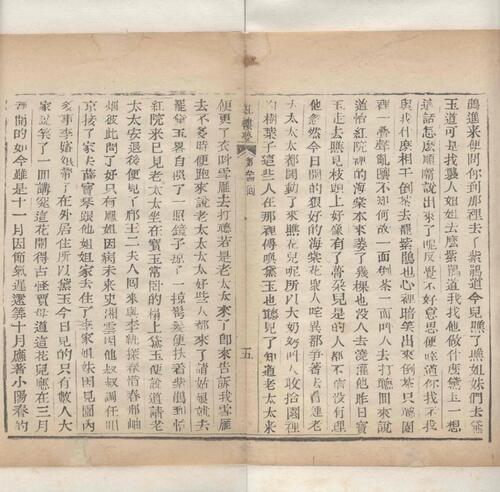 鵑進來便問你到那裡去了紫鵑道今兒瞧了瞧姐妹們去黛
玉道可是找襲人姐姐去麼紫鵑道我找他做什麼黛玉一想
這話怎麼順嘴說出來了呢反覺不好意思便啐道你找不找
與我什麼相干倒茶去罷紫鵑也心裡暗笑出來倒茶只聽園
裡一疊聲亂嚷不知何故一面倒茶一面叫人去打聽回來說
道怡紅院裡的海棠本來萎了幾棵也沒人去澆灌他昨日寶
玉走去瞧見枝頭上好像有了蓇朵兒是的人都不信沒有理
他忽然今日開的狠好的海棠花眾人咤異都爭著去看連老
太太太太都鬨動了來瞧花兒呢所以大奶奶叫人收拾園裡
的樹葉子這些人在那裡傳喚黛玉也聽見了知道老太太來
紅樓夢 第 回 五
便更了衣叫雪雁去打聽若是老太太來了即來告訴我雪雁
去不多時便跑來說老太太太太好些人都來了請姑娘就去
罷黛玉畧自照了一照鏡子掠了一掠鬢髮便扶着紫鵑到怡
紅院來已見老太太坐在寶玉常臥的榻上黛玉便說道請老
太太安退後便見了邢王二夫人回來與李紈探春惜春邢岫
烟彼此問了好只有鳳姐因病未來史湘雲因他叔叔調任回
京接了家去薛寶琴跟他姐姐家去住了李家姐妹因見園內
多事李嬸娘帶了在外居住所以黛玉今日見的只有數人大
家說笑了一回講究這花開得古怪賈母道這花兒應在三月
裡開的如今雖是十一月因節氣遲還算十月應著小陽春的